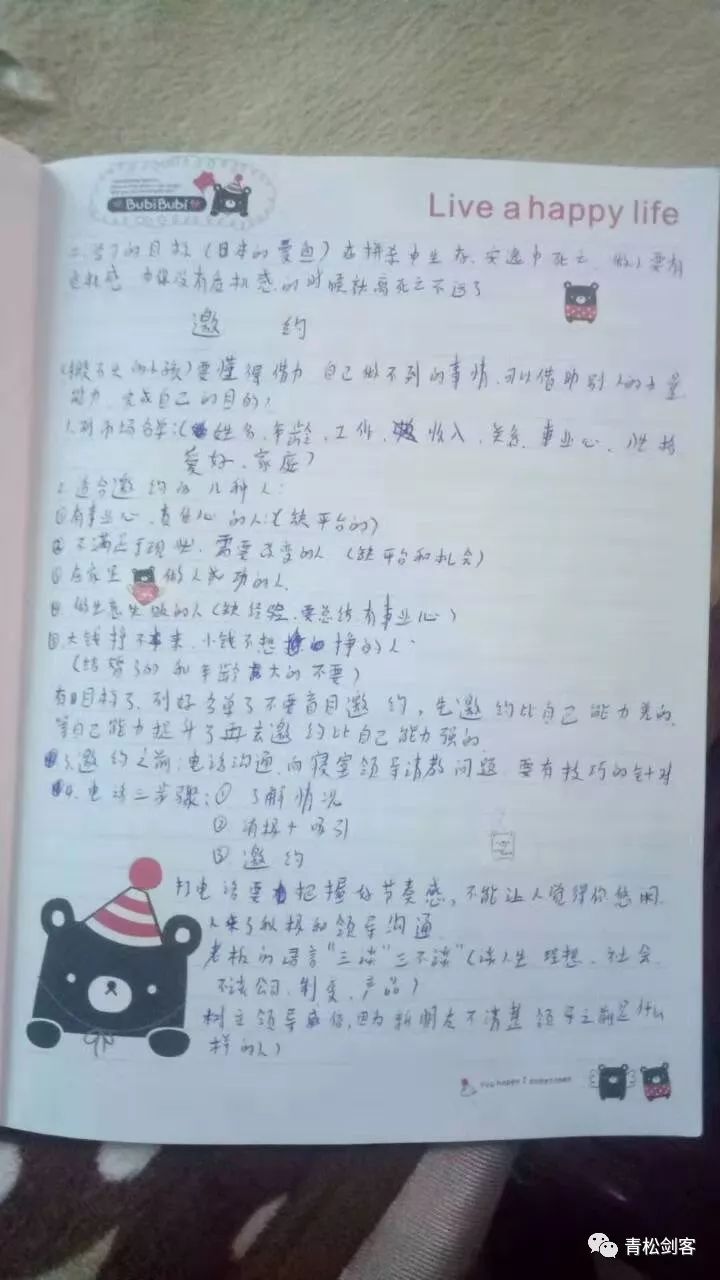 BubiBubi
Live a happy life
二.学习的目标(日本的鳗鱼)在拼杀中生存、安逸中死亡、做人要有
危机感 当你没有危机感的时候就离死亡不远了
邀 约
(搬石头的小孩)要懂得借力 自己做不到的事情,可以借助别人的力量
能力,完成自己的目的;
1.列市场名单:(姓名、年龄、工作、收入、关系、事业心、性格
爱好、家庭)
2.适合邀约的几种人:
①有事业心、责任心的人:(缺平台的)
② 不满足于现状,需要改变的人 (缺平台和机会)
③在家里 做人成功的人
④.做生意失败的人(缺经验,要总结,有事业心)
⑤.大钱挣不来,小钱不想挣的人
(结婚了的和年龄大的不要)
有目标了、列好名单了不要盲目邀约,先邀约比自己能力差的,
等自己能力提升了再去邀约比自己能力强的
3.邀约之前:电话沟通,向寝室领导请教问题,要有技巧的针对
4.电话三步骤:① 了解情况
② 消极+吸引
③ 邀约
打电话要把握好节奏感,不能让人觉得你悠闲
人来了积极和领导沟通
老板的语言"三谈"三不谈"(谈人生 理想、社会
不谈公司、制度、产品)
树立领导威信,因为新朋友不清楚领导之前是什么
样的人)
You happy I
青松剑客